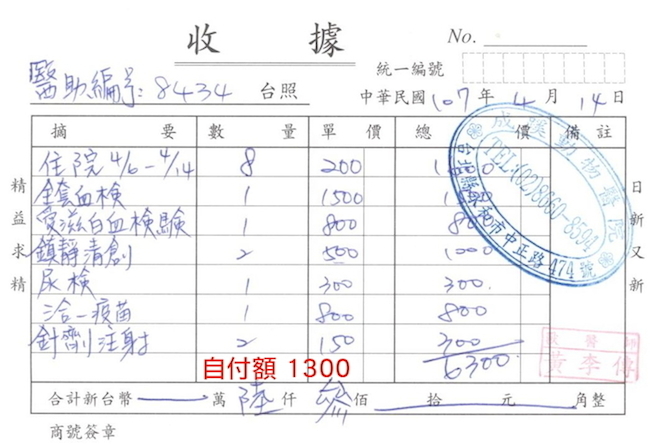 收據
No.
統一編號
醫助編号: 8434 台照
中華民國 107 年 4 月 14 日
摘要 數量 單價 總價 備註
住院 4/6 - 4/14 8 200
全套血檢 1 1500
愛滋白血檢驗 1 800
鎮靜清創 2 500 1000
尿檢 1 300 300.
三合一疫苗 1 800 800
針劑注射 2 150 300
6300.
自付額 1300
合計新台幣 萬 陸 仟 參 佰 拾 元 角整
商號簽章
精益求精
日新又新
成蹊動物醫院
TEL:(02)8660-8594
台北縣 和市中正路474號
獸醫師
黃李傳